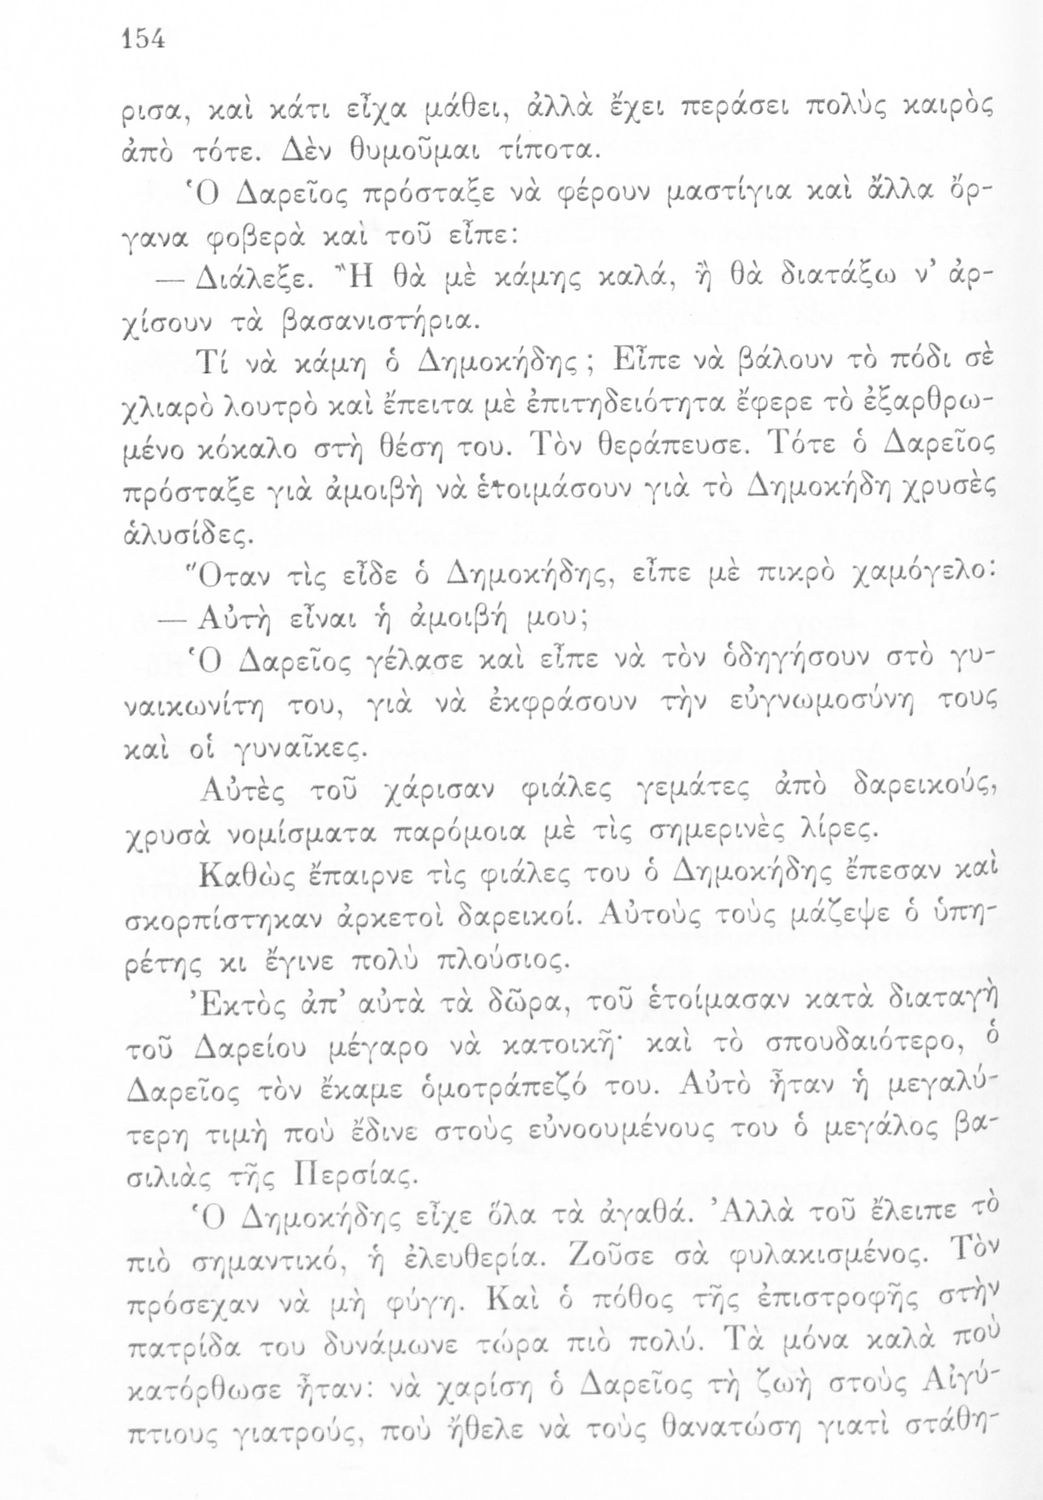 154
ρισα, καὶ κάτι εἶχα μάθει, ἀλλὰ ἔχει περάσει πολὺς καιρὸς
ἀπὸ τότε. Δὲν θυμοῦμαι τίποτα.
Ὁ Δαρεῖος πρόσταξε νὰ φέρουν μαστίγια καὶ ἄλλα ὄρ-
γανα φοβερὰ καὶ τοῦ εἶπε:
— Διάλεξε. Ἢ θὰ μὲ κάμης καλά, ἢ θὰ διατάξω ν’ ἀρ-
χίσουν τὰ βασανιστήρια.
Τί νὰ κάμη ὁ Δημοκήδης ; Εἶπε νὰ βάλουν τὸ πόδι σὲ
χλιαρὸ λουτρὸ καὶ ἔπειτα μὲ ἐπιτηδειότητα ἔφερε τὸ ἐξαρθρω-
μένο κόκαλο στὴ θέση του. Τὸν θεράπευσε. Τότε ὁ Δαρεῖος
πρόσταξε γιὰ ἀμοιβὴ νὰ ἑτοιμάσουν γιὰ τὸ Δημοκήδη χρυσὲς
ἁλυσίδες.
Ὅταν τὶς εἶδε ὁ Δημοκήδης, εἶπε μὲ πικρὸ χαμόγελο:
— Αὐτὴ εἶναι ἡ ἀμοιβή μου;
Ὁ Δαρεῖος γέλασε καὶ εἶπε νὰ τὸν ὁδηγήσουν στὸ γυ-
ναικωνίτη του, γιὰ νὰ ἐκφράσουν τὴν εὐγνωμοσύνη τους
καὶ οἱ γυναῖκες.
Αὐτὲς τοῦ χάρισαν φιάλες γεμάτες ἀπὸ δαρεικούς,
χρυσὰ νομίσματα παρόμοια μὲ τὶς σημερινὲς λίρες.
Καθὼς ἔπαιρνε τὶς φιάλες του ὁ Δημοκήδης ἔπεσαν καὶ
σκορπίστηκαν ἀρκετοὶ δαρεικοί. Αὐτοὺς τοὺς μάζεψε ὁ ὑπη-
ρέτης κι ἔγινε πολὺ πλούσιος.
Ἐκτὸς ἀπ’ αὐτὰ τὰ δῶρα, τοῦ ἑτοίμασαν κατὰ διαταγὴ
τοῦ Δαρείου μέγαρο νὰ κατοικῆ· καὶ τὸ σπουδαιότερο, ὁ
Δαρεῖος τὸν ἔκαμε ὁμοτράπεζό του. Αὐτὸ ἦταν ἡ μεγαλύ-
τερη τιμὴ ποὺ ἔδινε στοὺς εὐνοουμένους του ὁ μεγάλος βα-
σιλιὰς τῆς Περσίας.
Ὁ Δημοκήδης εἶχε ὅλα τὰ ἀγαθά. Ἀλλὰ τοῦ ἔλειπε τὸ
πιὸ σημαντικό, ἡ ἐλευθερία. Ζοῦσε σὰ φυλακισμένος. Τὸν
πρόσεχαν νὰ μὴ φύγη. Καὶ ὁ πόθος τῆς ἐπιστροφῆς στὴν
πατρίδα του δυνάμωνε τώρα πιὸ πολύ. Τὰ μόνα καλὰ ποὺ
κατόρθωσε ἦταν: νὰ χαρίση ὁ Δαρεῖος τὴ ζωὴ στοὺς Αἰγύ-
πτιους γιατρούς, ποὺ ἤθελε νὰ τοὺς θανατώση γιατὶ στάθη-